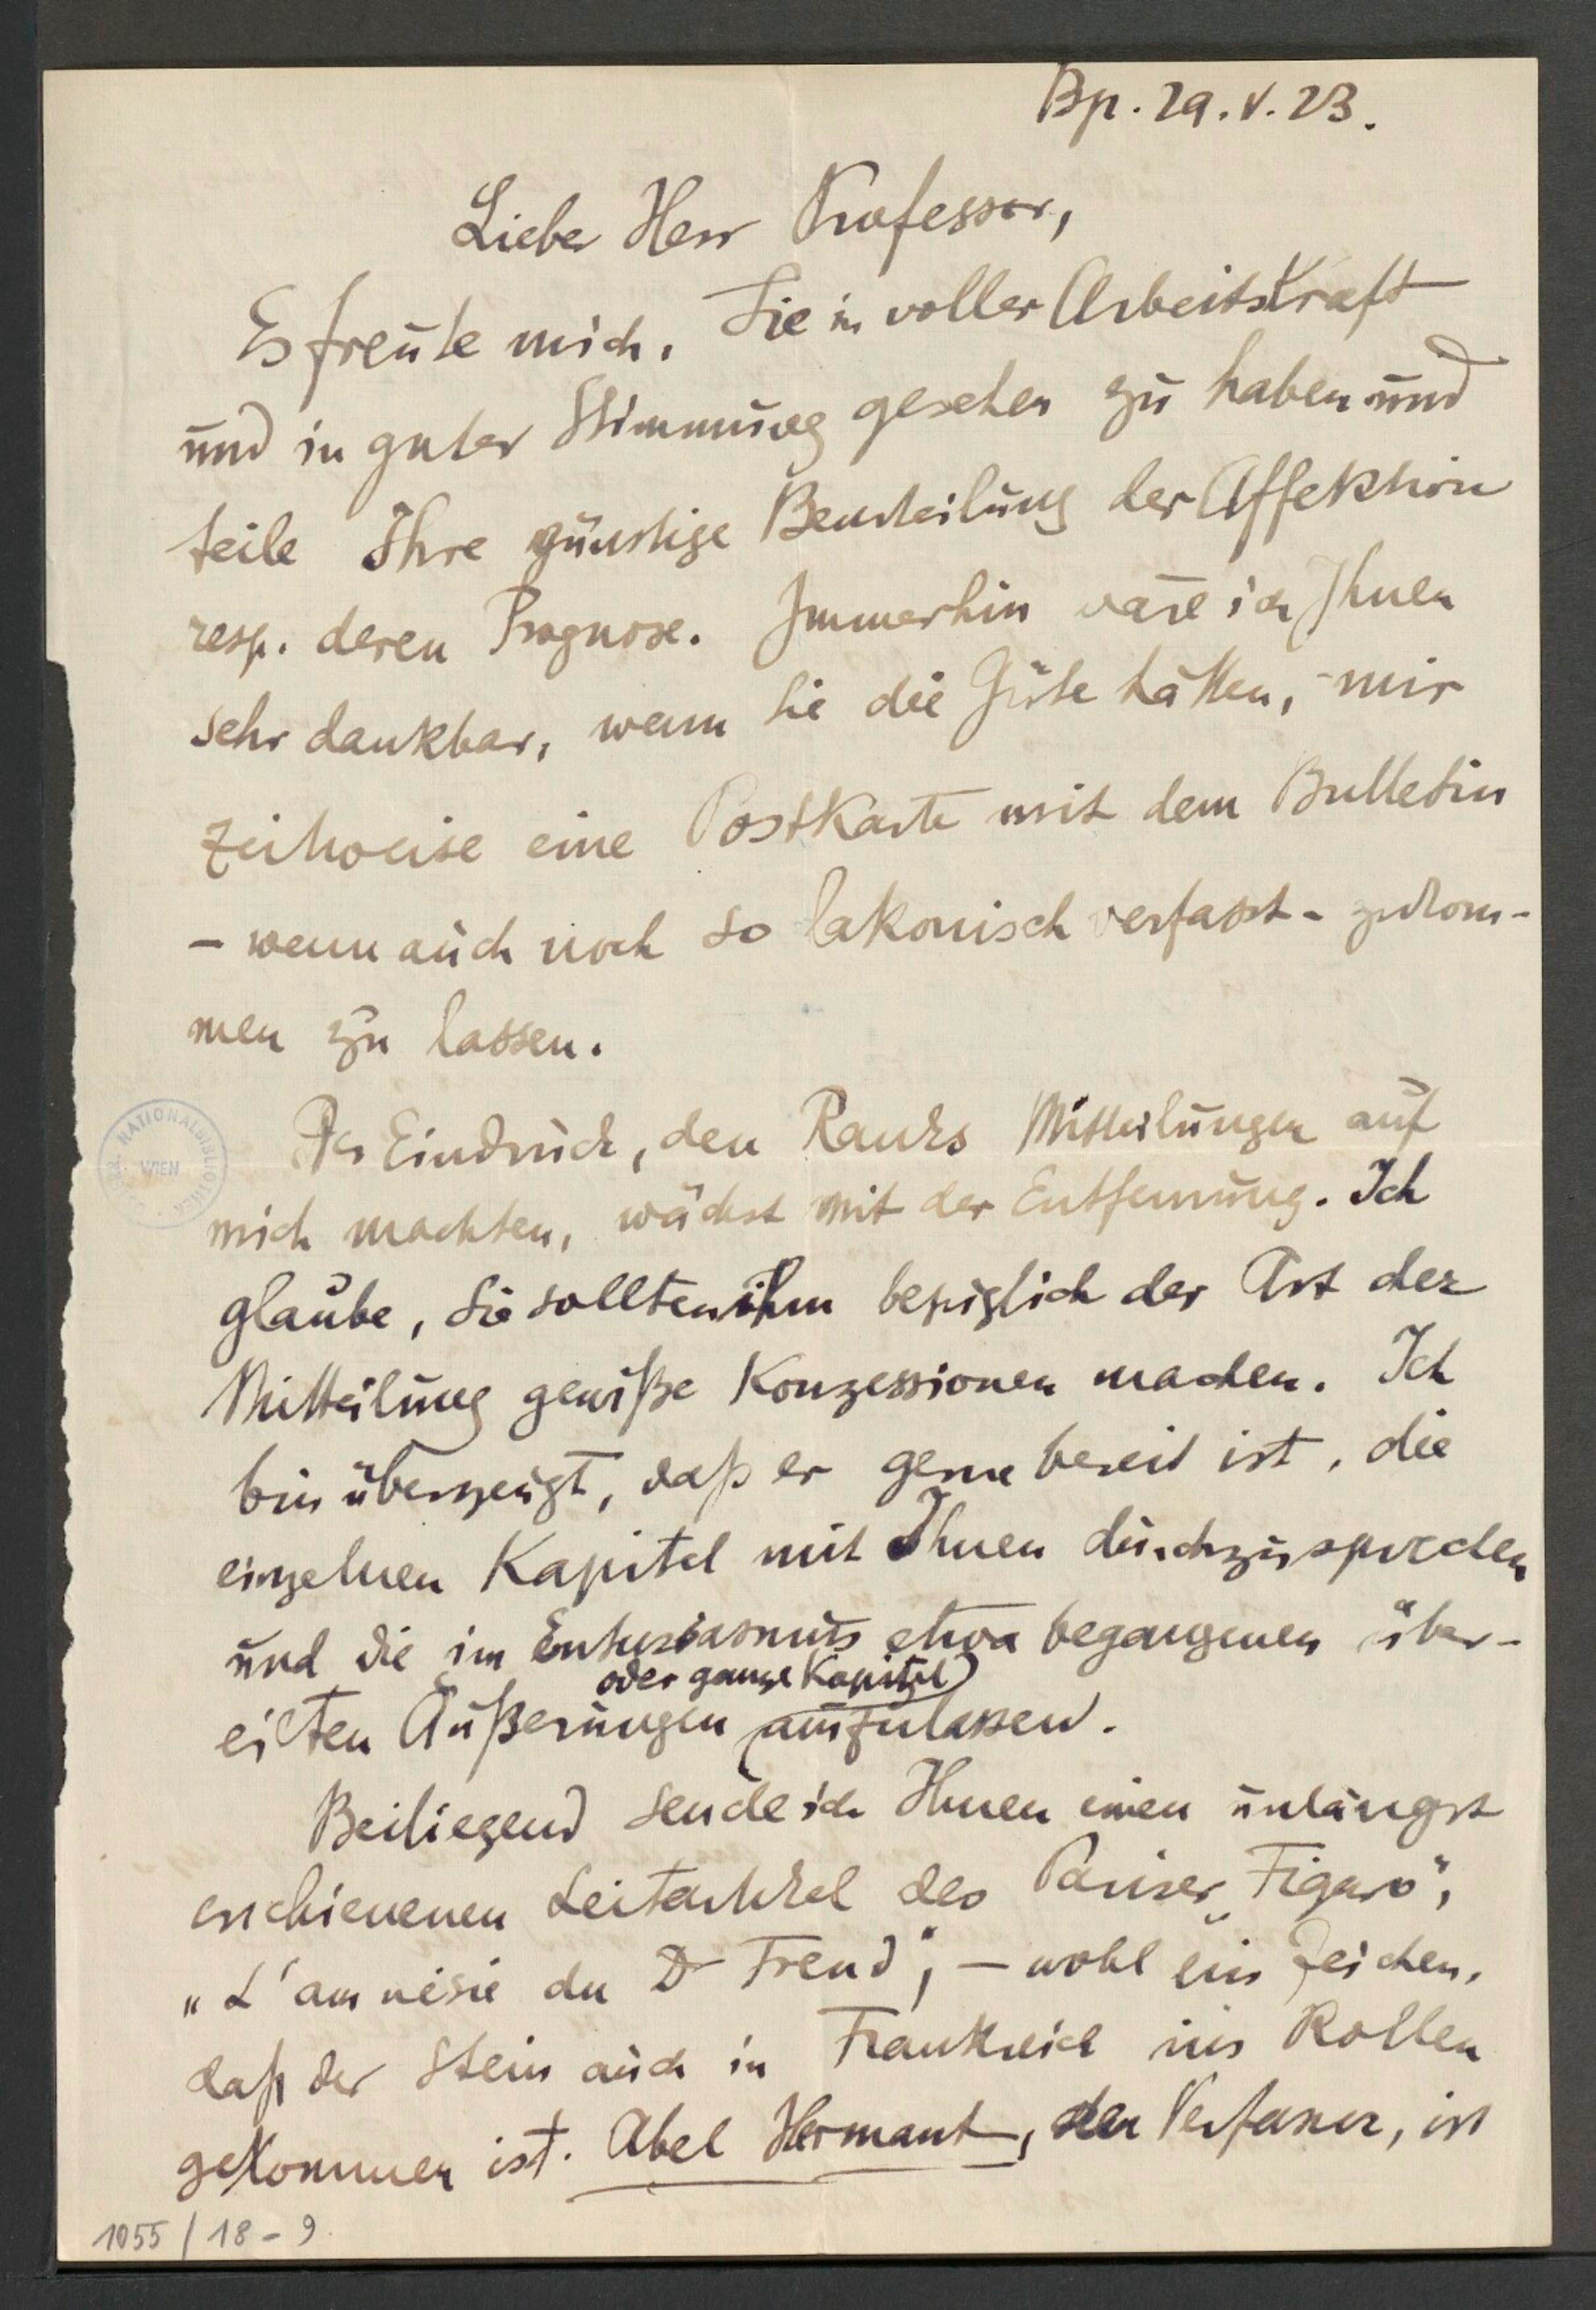 Bp. 29. V. 23.
Lieber Herr Professor,
Es freute mich, Sie in voller Arbeitskraft
und in guter Stimmung gesehen zu haben und
teile Ihre günstige Beurteilung der Affektion
resp. deren Prognose. Immerhin wäre ich Ihnen
sehr dankbar, wenn Sie die Güte hätten, mir
zeitweise eine Postkarte mit dem Bulletin
– wenn auch noch so lakonisch verfasst – zukom-
men zu lassen.
Der Eindruck, den Ranks Mitteilungen auf
mich machten, wächst mit der Entfernung. Ich
glaube, Sie sollten ihm bezüglich der Art der
Mitteilung gewiße Konzessionen machen. Ich
bin überzeugt, daß er gerne bereit ist, die
einzelnen Kapitel mit Ihnen durchzusprechen
und die im Entusiasmus etwa begangenen über-
oder ganze Kapitel
eilten Äußerungen auszulassen.
Beiliegend sende ich Ihnen einen unlängst
erschienenen Leitartikel des Pariser „Figaro“,
„L'amnésie du Dr Freud“, – wohl ein Zeichen,
daß der Stein auch in Frankreich ins Rollen
gekommen ist. Abel Hermant, der Verfasser, ist
1055 / 18 – 9
NATIONALBIBLIOTHEK
WIEN